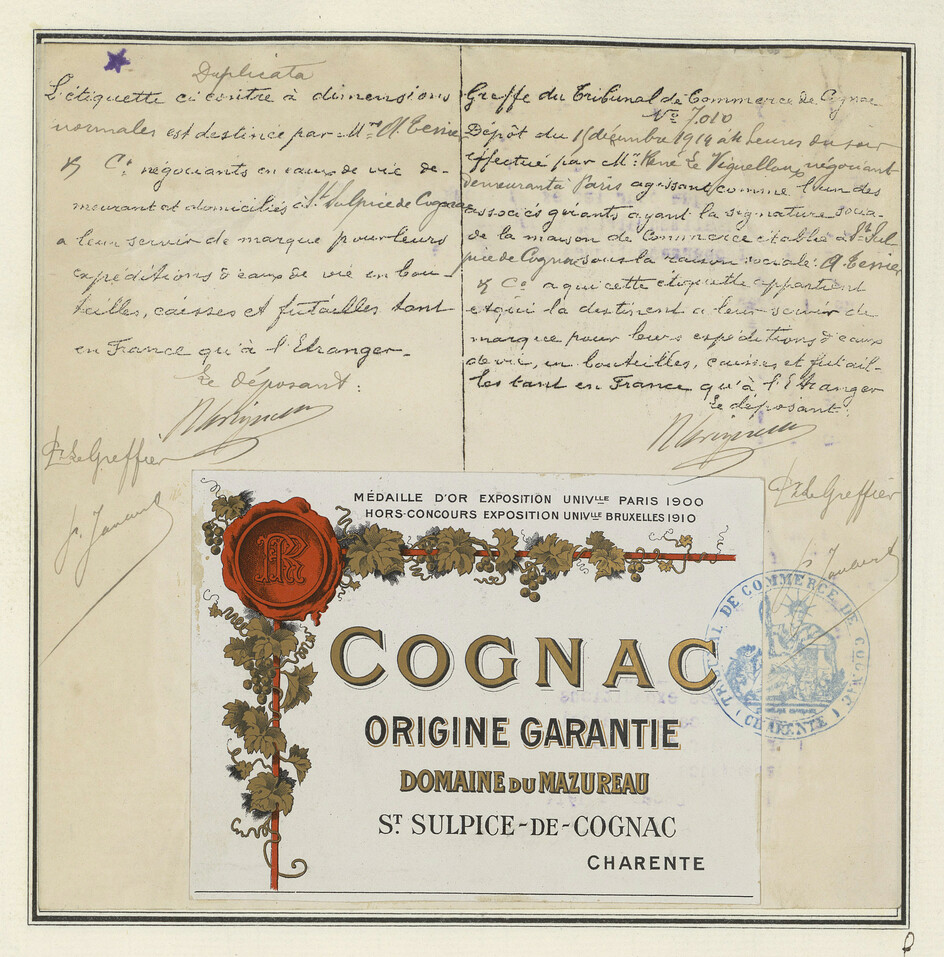 Duplicata
L'étiquette ci contre à dimensions
normales est destinée par Mrs A. Tessier
& Cie négociants en eaux de vie de-
meurant et domiciliés à St Sulpice de Cognac
a leur servir de marque pour leurs
expéditions d'eaux de vie en bou-
teilles, caisses et futailles tant
en France qu'à l'Etranger.
Le déposant:
Le Greffier
Greffe du Tribunal de Commerce de Cognac
No 7,010
Dépôt du 15 décembre 1914 à 4 heures du soir
effectué par Mr. René Le négociant
demeurant à Paris agissant comme l'un des
associés gérants ayant la signature socia-
le de la maison de Commerce établie à St Sul-
pice de Cognac sous la raison sociale: A. Tessier
& Co a qui cette étiquette appartient
et qui la destinent a leur servir de
marque pour leurs expéditions d'eaux
de vie, en bouteilles, caisses et futail-
les tant en France qu'à l'Etranger
Le déposant:
Le Greffier
MÉDAILLE D'OR EXPOSITION UNIVLLE PARIS 1900
HORS-CONCOURS EXPOSITION UNIVLLE BRUXELLES 1910
COGNAC
ORIGINE GARANTIE
DOMAINE DU MAZUREAU
ST SULPICE-DE-COGNAC
CHARENTE
TRIBUNAL DE COMMERCE DE COGNAC
(CHARENTE)